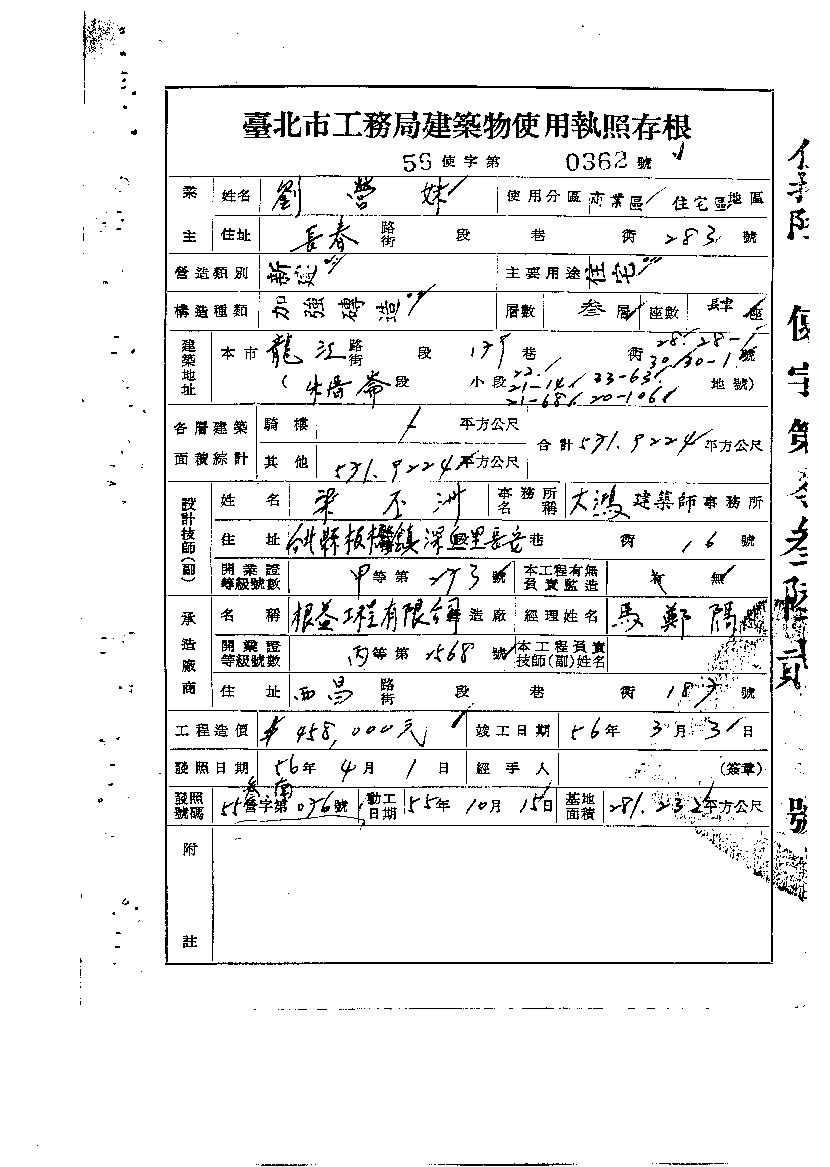 臺北市工務局建築物使用執照存根
56使字第 0362 號
業主 姓名 劉營妹 使用分區 商業區 住宅區 地區
住址 長春 路街 段 巷 衖 283 號
營造類別 新建 主要用途 住宅
構造種類 加強磚造 層數 叁層 座數 肆座
建築地址 本市 龍江 路街 段 巷 衖 28. 28-1 30. 30-1 號
( 段 小段 21-14 33-63 21-68 20-106 地號)
各層建築面積綜計 騎樓 平方公尺 合計 571.9224 平方公尺
其他 571.9224 平方公尺
設計技師(副) 姓名 梁丕洲 事務所名稱 大鴻 建築師事務所
住址 台北縣板橋鎮深 里長安 巷 衖 16 號
開業證等級號數 甲等第 273 號 本工程有無負責監造 有 無
承造廠商 名稱 根益工程有限公司 造廠 經理姓名 馬鄭陽
開業證等級號數 丙等第 1568 號 本工程負責技師(副)姓名
住址 西昌 路街 段 巷 衖 187 號
工程造價 $458,000元 竣工日期 56年 3月 31日
發照日期 56年 4月 1日 經手人 (簽章)
發照號碼 55營字第 036號 動工日期 55年 10月 15日 基地面積 281.232 平方公尺
附註
使字第 叁陸貳 號